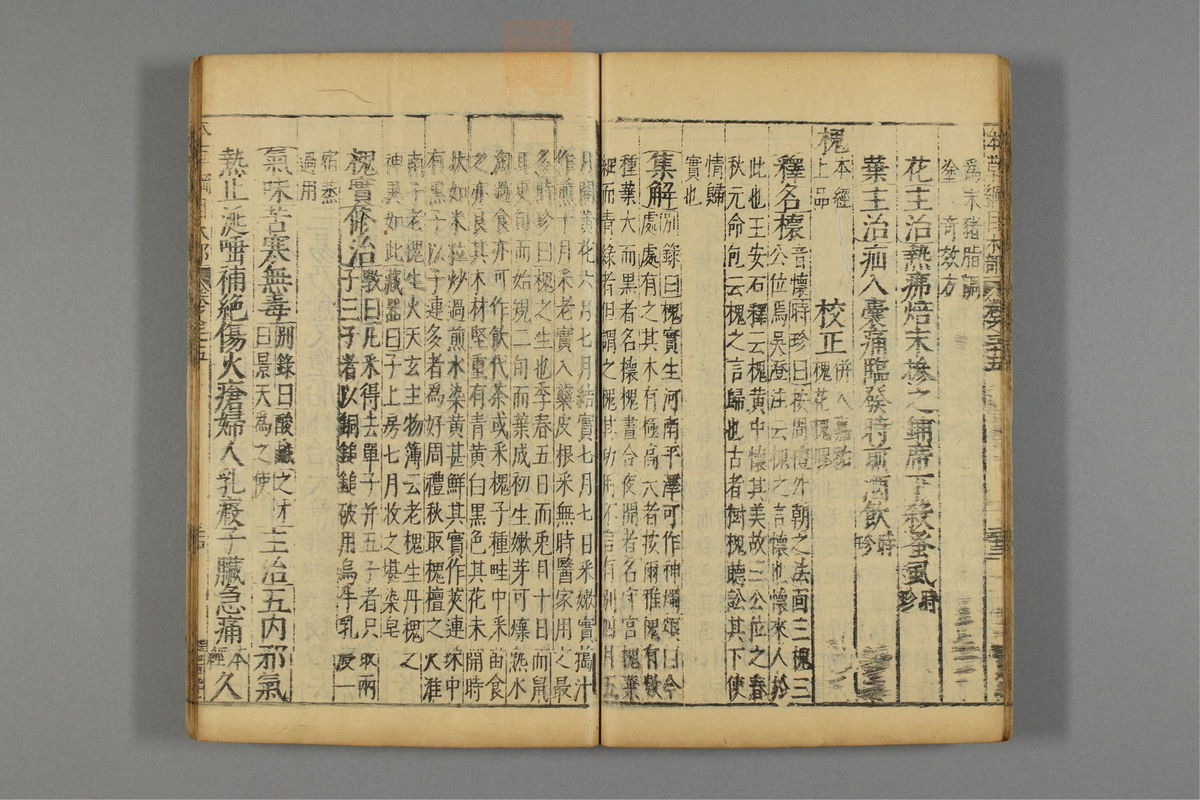 爲末豬脂調
塗 奇效方
花主治熱痱焙末摻之鋪席下殺蚤虱時珍
葉主治疝入囊痛臨發時煎酒飲時珍
槐本經上品 校正併入嘉祐槐花槐膠
釋名櫰音懷時珍曰按周禮外朝之法面三槐三
公位焉吳澄注云槐之言懷也懷來人於
此也王安石釋云槐黃中懷其美故三公位之春
秋元命包云槐之言歸也古者樹槐聽訟其下使
情歸
實也
集解別錄曰槐實生河南平澤可作神燭頌曰今
處處有之其木有極高大者按爾雅槐有數
種葉大而黑者名櫰槐晝合夜開者名守宮槐葉
細而青綠者但謂之槐其功用不言有別四月五
月開黃花六月七月結實七月七日采嫩實搗汁
作煎十月采老實入藥皮根采無時醫家用之最
多時珍曰槐之生也季春五日而兎目十日而鼠
耳更旬而始規二旬而葉成初生嫩芽可煠熟水
淘過食亦可作飲代茶或采槐子種畦中采苗食
之亦良其木材堅重有青黃白黑色其花未開時
狀如米粒炒過煎水染黃甚鮮其實作莢連珠中
有黑子以子連多者爲好周禮秋取槐檀之火淮
南子老槐生火天玄主物簿云老槐生丹槐之
神異如此藏器曰子上房七月收之堪染皂
槐實修治斅曰凡采得去單子并五子者只取兩
子三子者以銅鎚鎚破用烏牛乳浸一
宿蒸
過用
氣味苦寒無毒別錄曰酸鹹之才曰景天爲之使主治五内邪氣
熱止涎唾補絶傷火瘡婦人乳瘕子臟急痛本經久